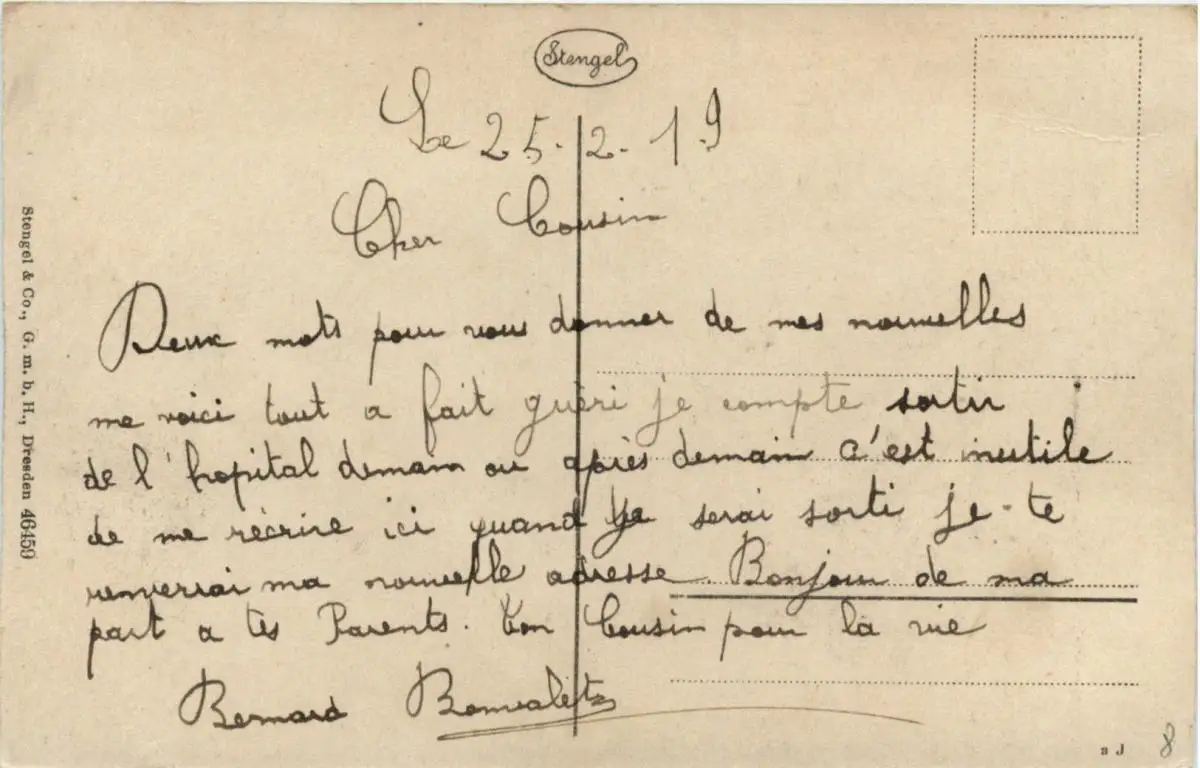 Stengel
Le 25.2.19
Cher Cousin
Deux mots pour vous donner de mes nouvelles
me voici tout a fait guèri je compte sortir
de l'hopital demain ou après demain c'est inutile
de me récrire ici quand je serai sorti je-te
renverrai ma nouvelle adresse. Bonjour de ma
part a tes Parents. Ton Cousin pour la vie
Bernard
Stengel & Co., G. m. b. H., Dresden 46459
a J
8